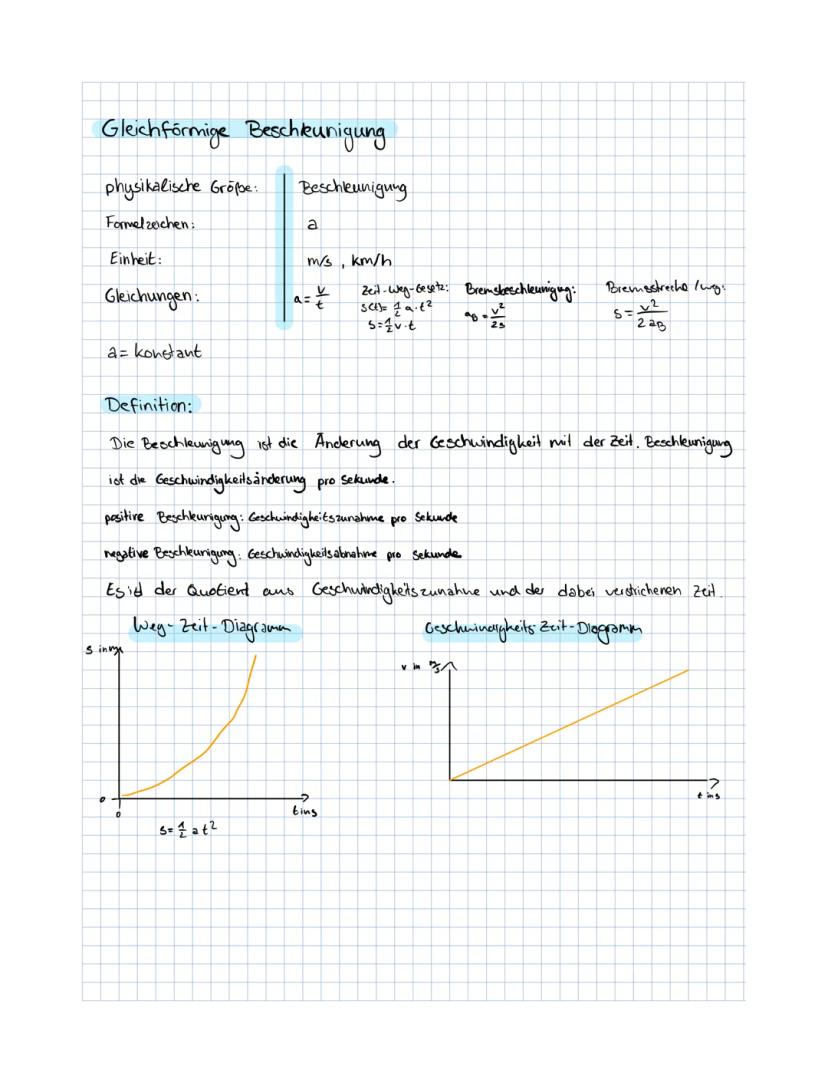 Gleichförmige Beschleunigung
physikalische Größe: Beschleunigung
Formelzeichen: a
Einheit: m/s , km/h
Gleichungen: a = v/t Zeit-Weg-Gesetz: Bremsbeschleunigung: Bremsstrecke /weg:
s(t)= 1/2 a·t² aB = v²/2s s = v²/2aB
s=1/2 v·t
a = konstant
Definition:
Die Beschleunigung ist die Änderung der Geschwindigkeit mit der Zeit. Beschleunigung
ist die Geschwindigkeitsänderung pro Sekunde.
positive Beschleunigung: Geschwindigkeitszunahme pro Sekunde
negative Beschleunigung: Geschwindigkeitsabnahme pro Sekunde
Es ist der Quotient aus Geschwindigkeitszunahme und der dabei verstrichenen Zeit.
Weg-Zeit-Diagramm Geschwindigkeits-Zeit-Diagramm
s in m v in m/s
0 t in s
0 t in s
s= 1/2 a t²